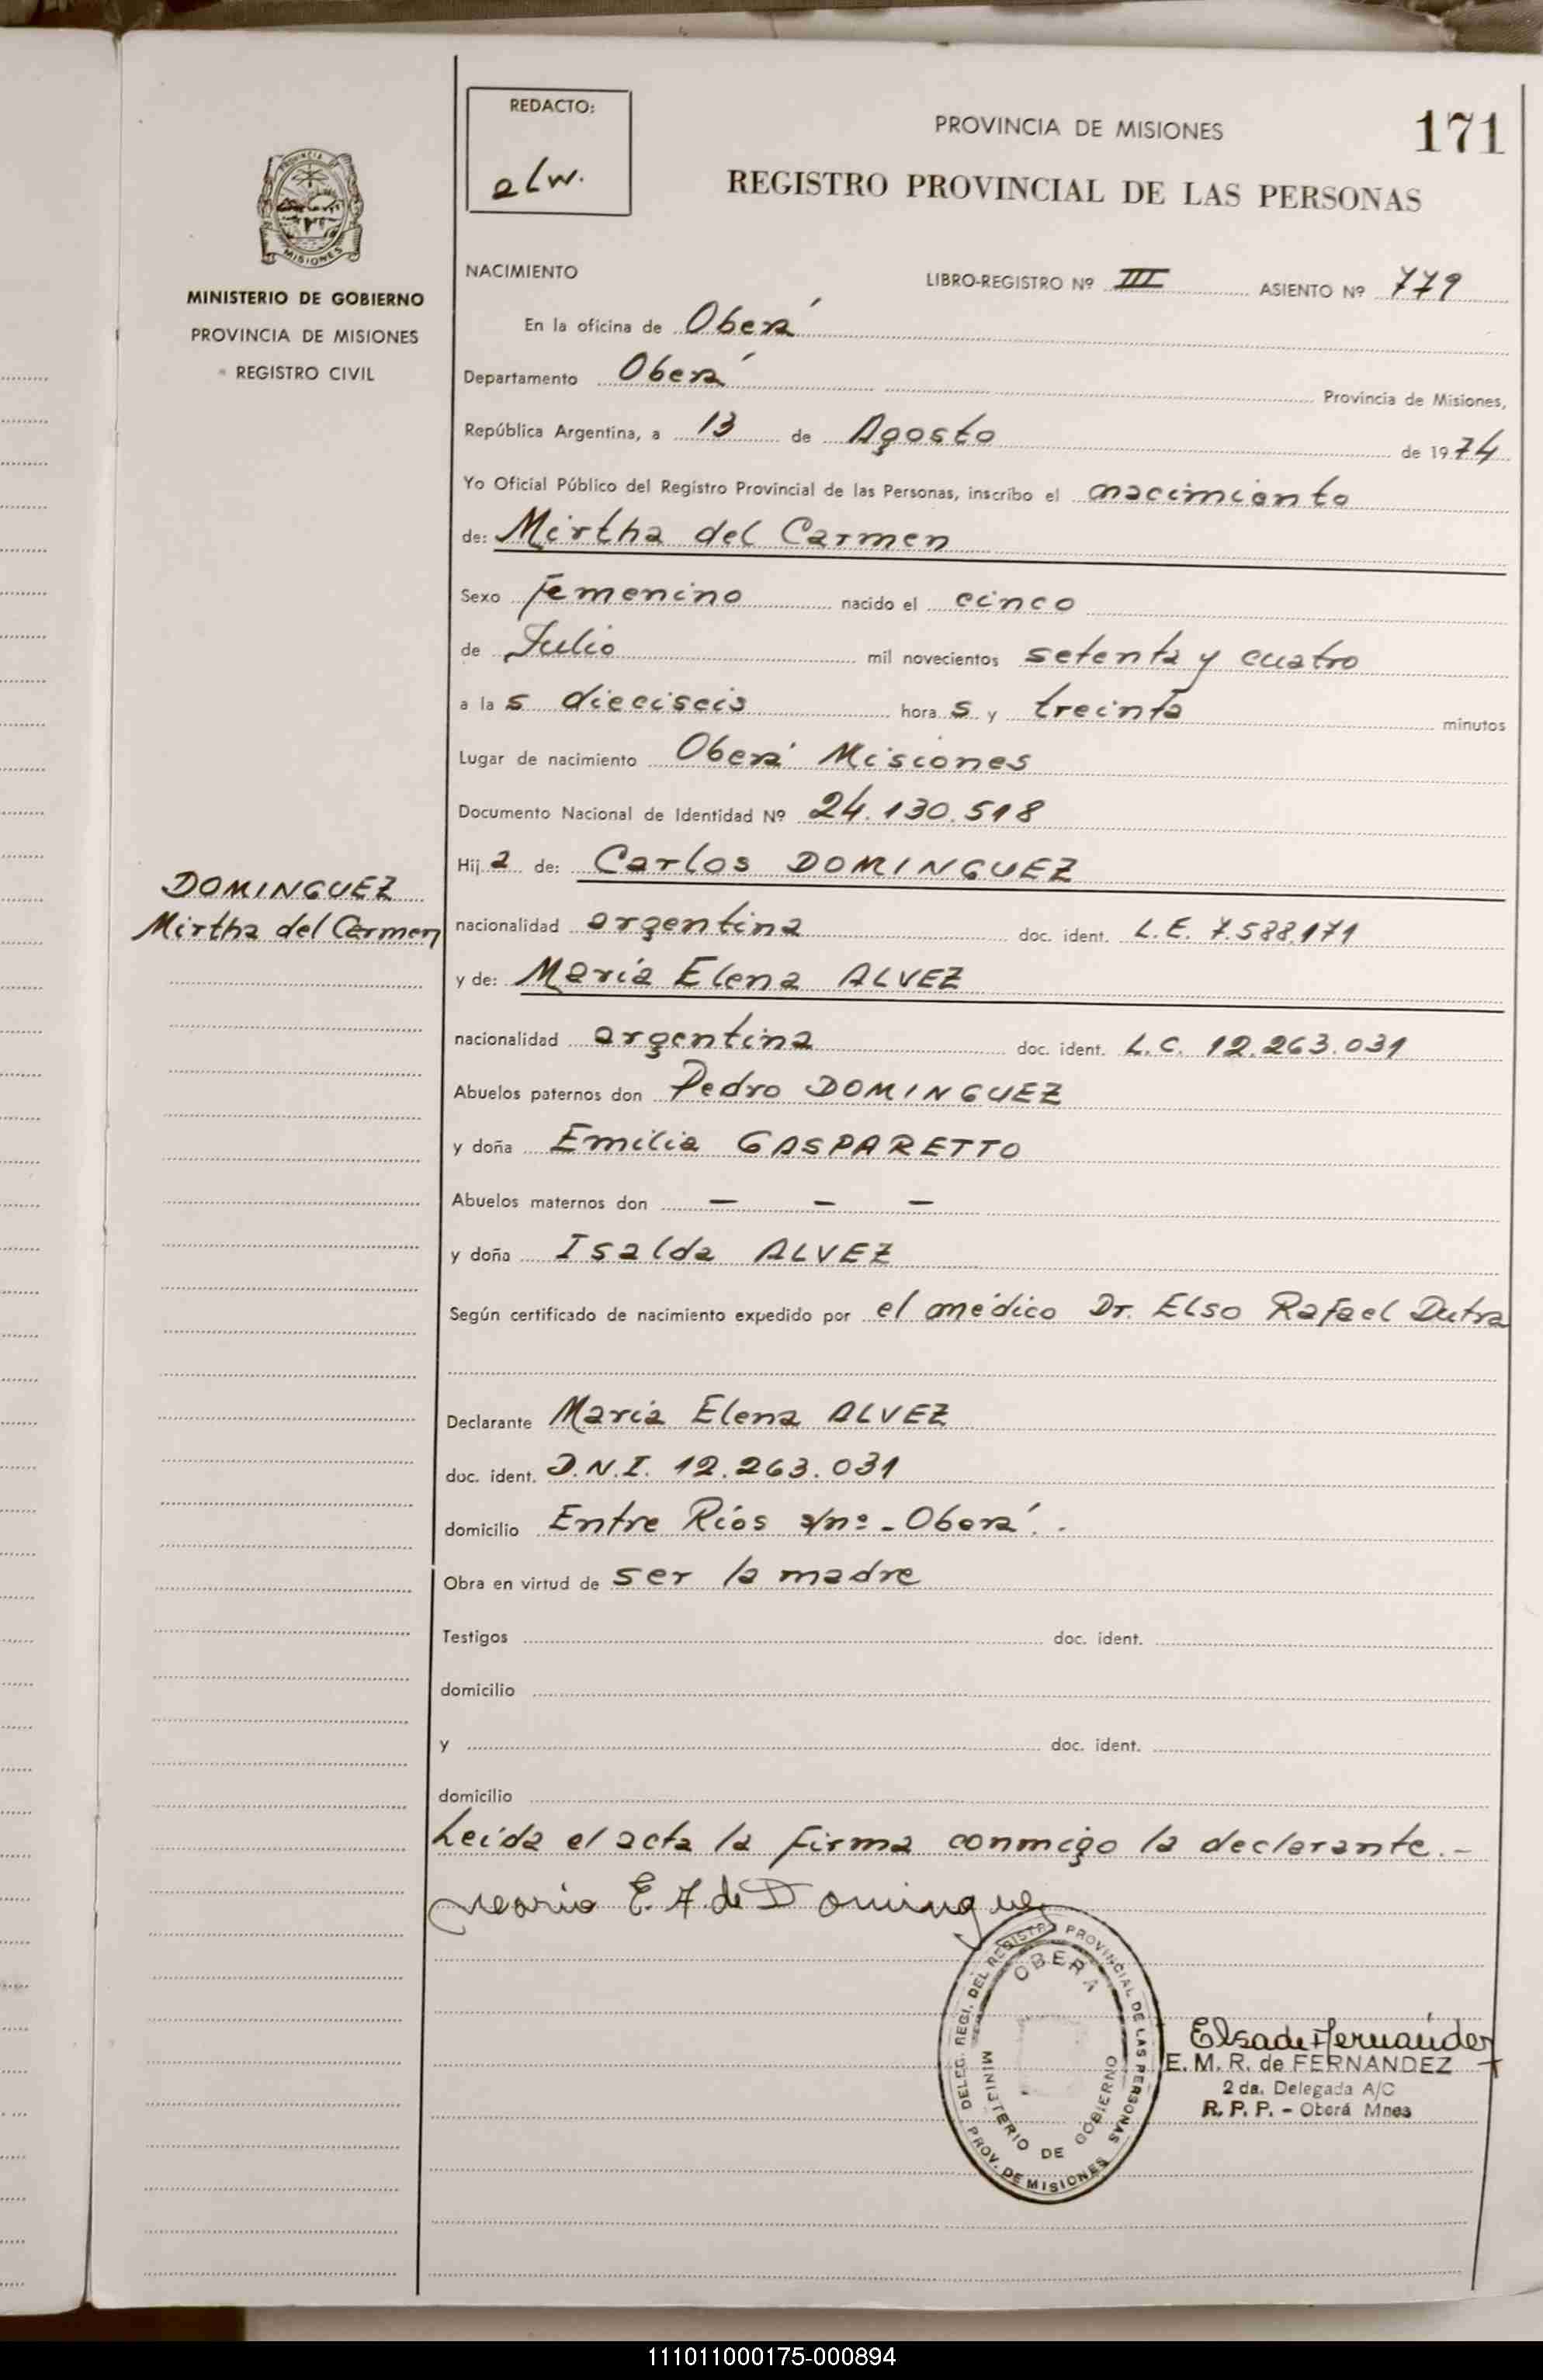 REDACTO:
elw.
PROVINCIA DE MISIONES
171
REGISTRO PROVINCIAL DE LAS PERSONAS
PROVINCIA DE
MISIONES
MINISTERIO DE GOBIERNO
PROVINCIA DE MISIONES
REGISTRO CIVIL
NACIMIENTO LIBRO-REGISTRO Nº III ASIENTO Nº 779
En la oficina de Oberá
Departamento Oberá Provincia de Misiones,
República Argentina, a 13 de Agosto de 1974
Yo Oficial Público del Registro Provincial de las Personas, inscribo el nacimiento
de: Mirtha del Carmen
Sexo femenino nacido el cinco
de Julio mil novecientos setenta y cuatro
a la s dieciseis hora s y treinta minutos
Lugar de nacimiento Oberá Misiones
Documento Nacional de Identidad Nº 24.130.518
Hij a de: Carlos DOMINGUEZ
DOMINGUEZ
Mirtha del Carmen
nacionalidad argentina doc. ident. L.E. 7.588.171
y de: María Elena ALVEZ
nacionalidad argentina doc. ident. L.C. 12.263.031
Abuelos paternos don Pedro DOMINGUEZ
y doña Emilia GASPARETTO
Abuelos maternos don — — —
y doña Isalda ALVEZ
Según certificado de nacimiento expedido por el médico Dr. Elso Rafael Dutra
Declarante María Elena ALVEZ
doc. ident. D.N.I. 12.263.031
domicilio Entre Ríos s/nº - Oberá.-
Obra en virtud de ser la madre
Testigos doc. ident.
domicilio
y doc. ident.
domicilio
Leída el acta la firma conmigo la declarante.-
Maria E. A. de Dominguez
DELEG. REGI. DEL REGISTRO PROVINCIAL DE LAS PERSONAS
OBERA
MINISTERIO DE GOBIERNO
PROV. DE MISIONES
Elsa de Fernández
E. M. R. de FERNANDEZ
2 da. Delegada A/C
R. P. P. - Oberá Mnes
111011000175-000894